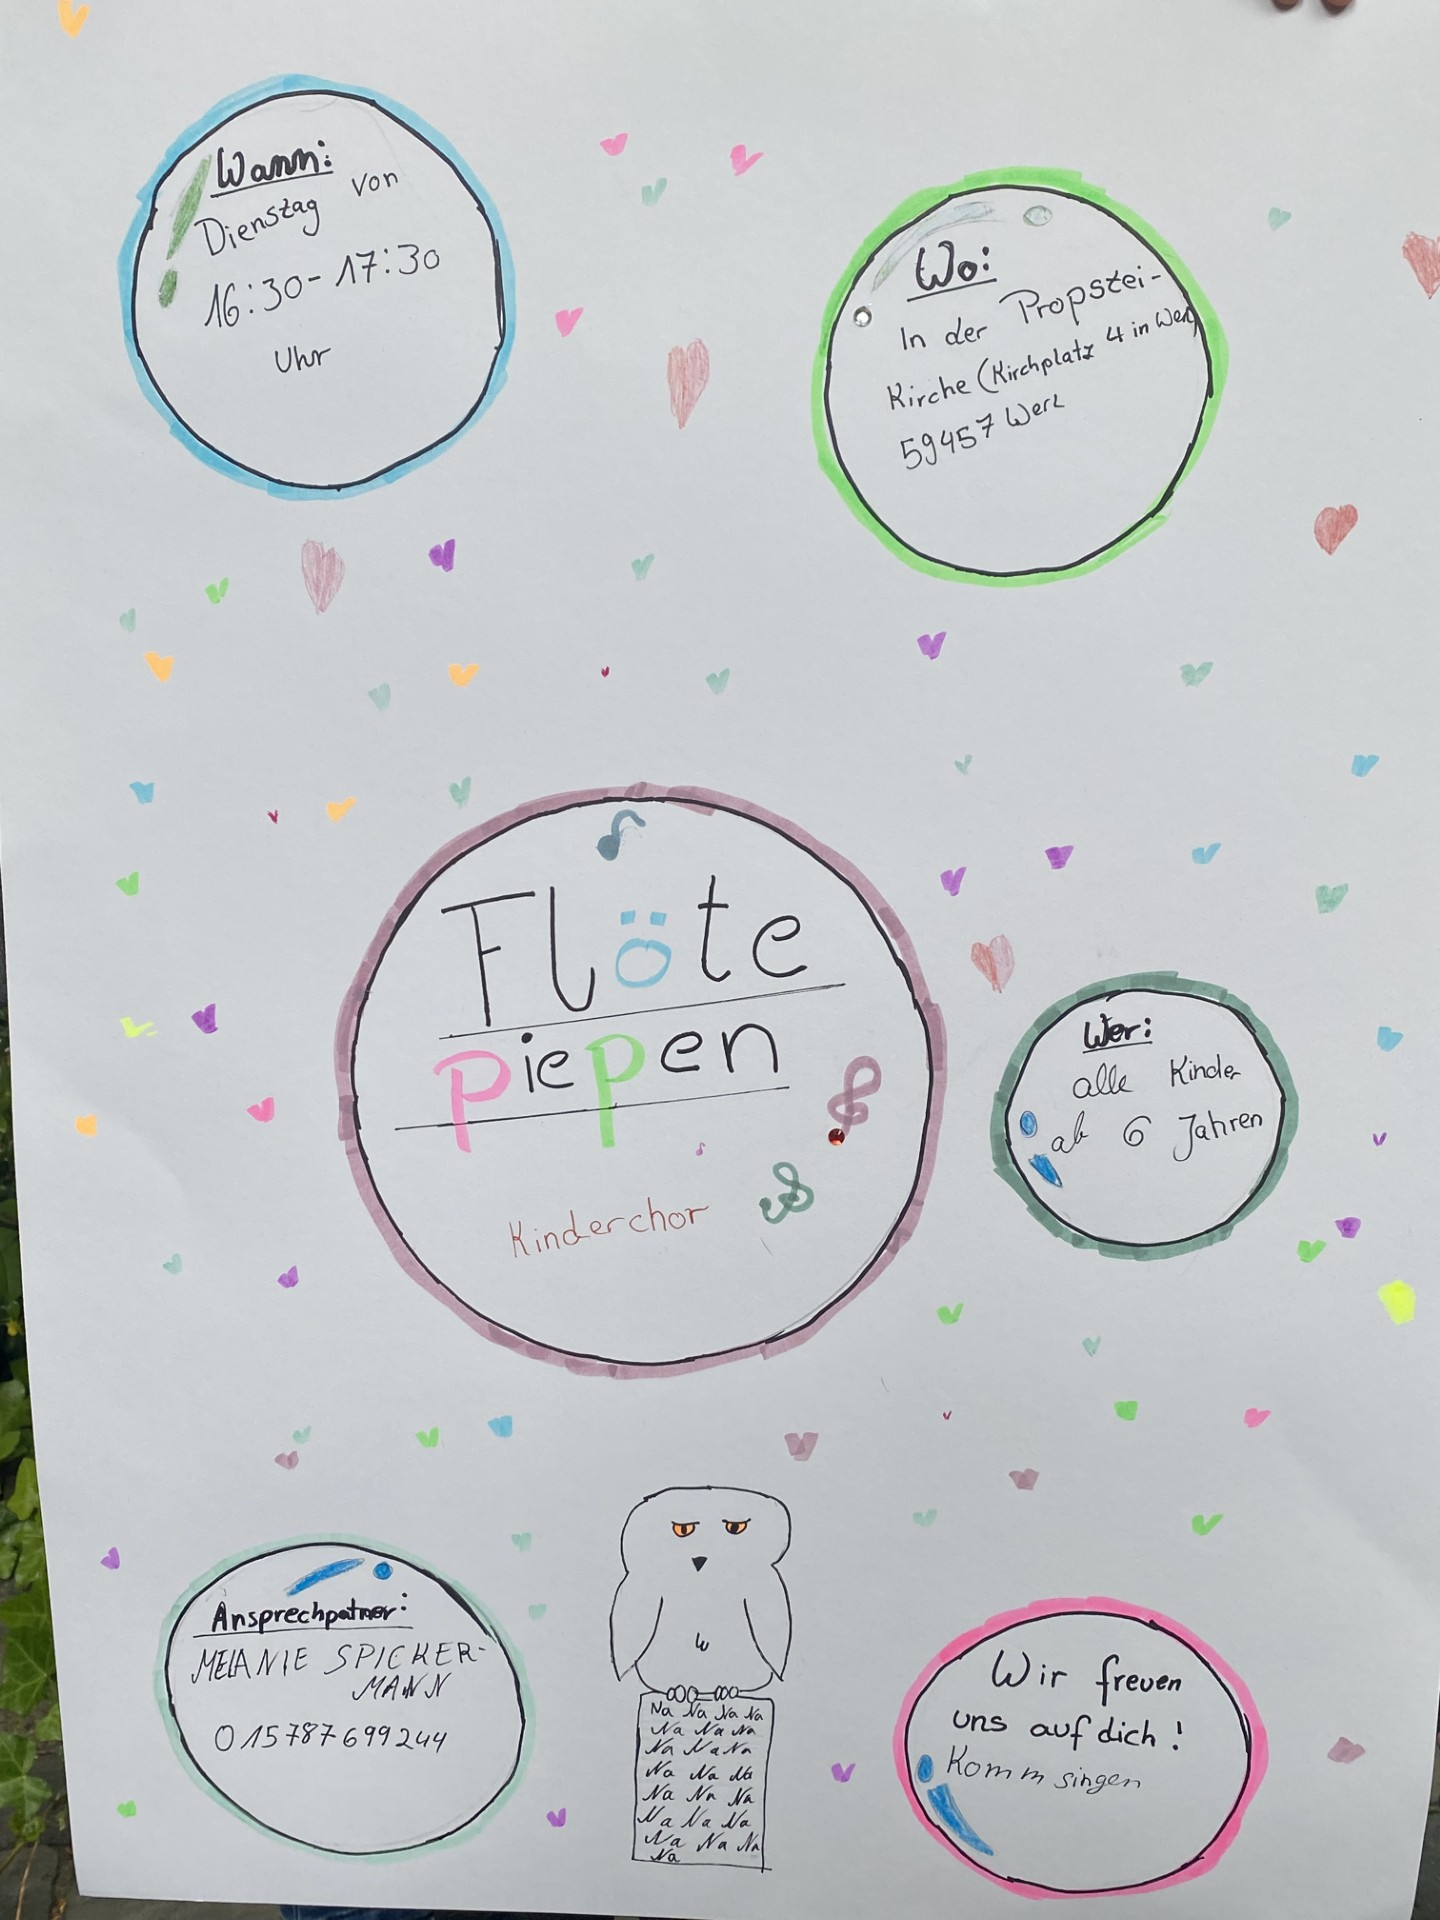 Wann:
Dienstag von
16:30-17:30
Uhr
Wo:
In der Propstei-
Kirche (Kirchplatz 4 in Werl)
59457 Werl
Flöte
piepen
Kinderchor
Wer:
alle Kinder
ab 6 Jahren
Ansprechpatner:
MELANIE SPICKER-
MANN
015787699244
Na Na Na Na
Na Na Na
Na Na Na
Na Na Na
Na Na Na
Na Na Na
Na Na Na
Na
Wir freuen
uns auf dich!
Komm singen